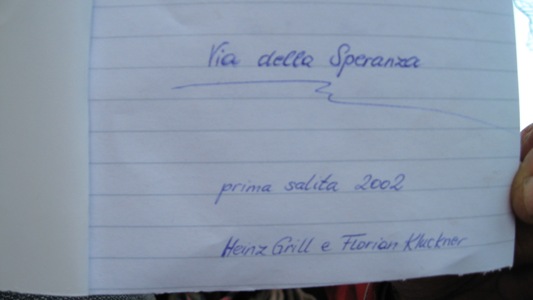 Via della Speranza
prima salita 2002
Heinz Grill e Florian Kluckner